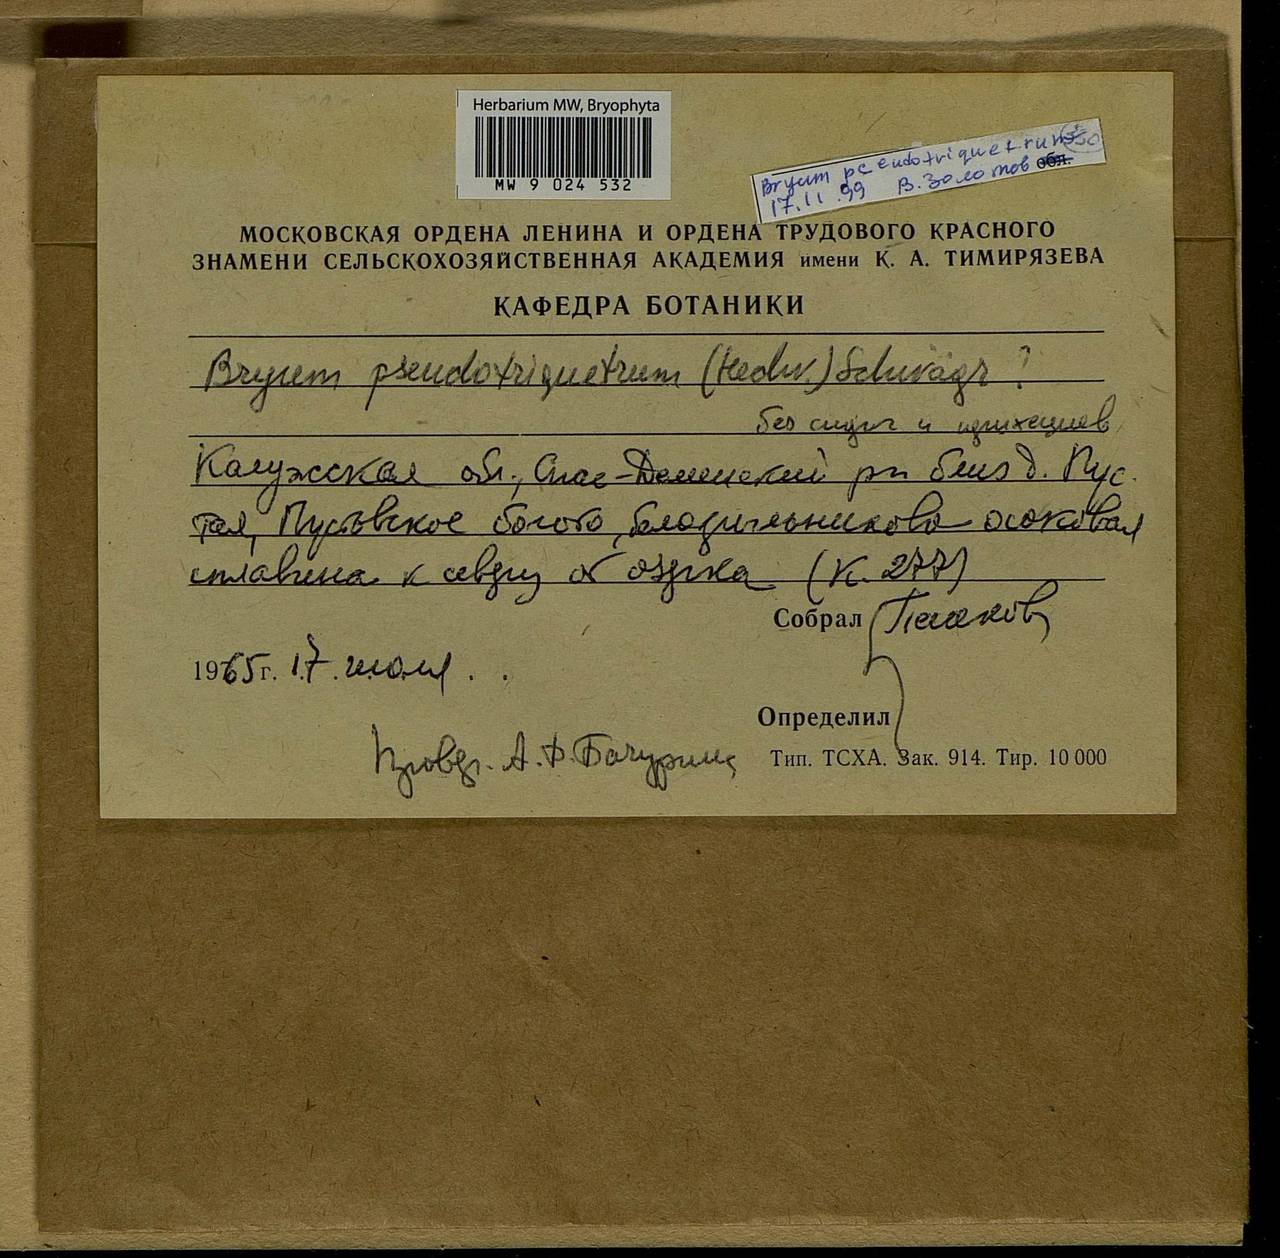 Herbarium MW, Bryophyta
MW 9 024 532
Bryum pseudotriquetrum
17.11.99 В. Золотов обл.
МОСКОВСКАЯ ОРДЕНА ЛЕНИНА И ОРДЕНА ТРУДОВОГО КРАСНОГО
ЗНАМЕНИ СЕЛЬСКОХОЗЯЙСТВЕННАЯ АКАДЕМИЯ имени К. А. ТИМИРЯЗЕВА
КАФЕДРА БОТАНИКИ
Bryum pseudotriquetrum (Hedw.) Schwägr ?
без и
Калужская обл., Спас-Деменский рн близ д. Пус-
тая, Пустовское болото, белокрыльниково осоковая
сплавина к северу от озерка (К. 277)
Собрал
1965 г. 17. июля . .
Определил
А. Ф. Бачурина
Тип. ТСХА. Зак. 914. Тир. 10 000